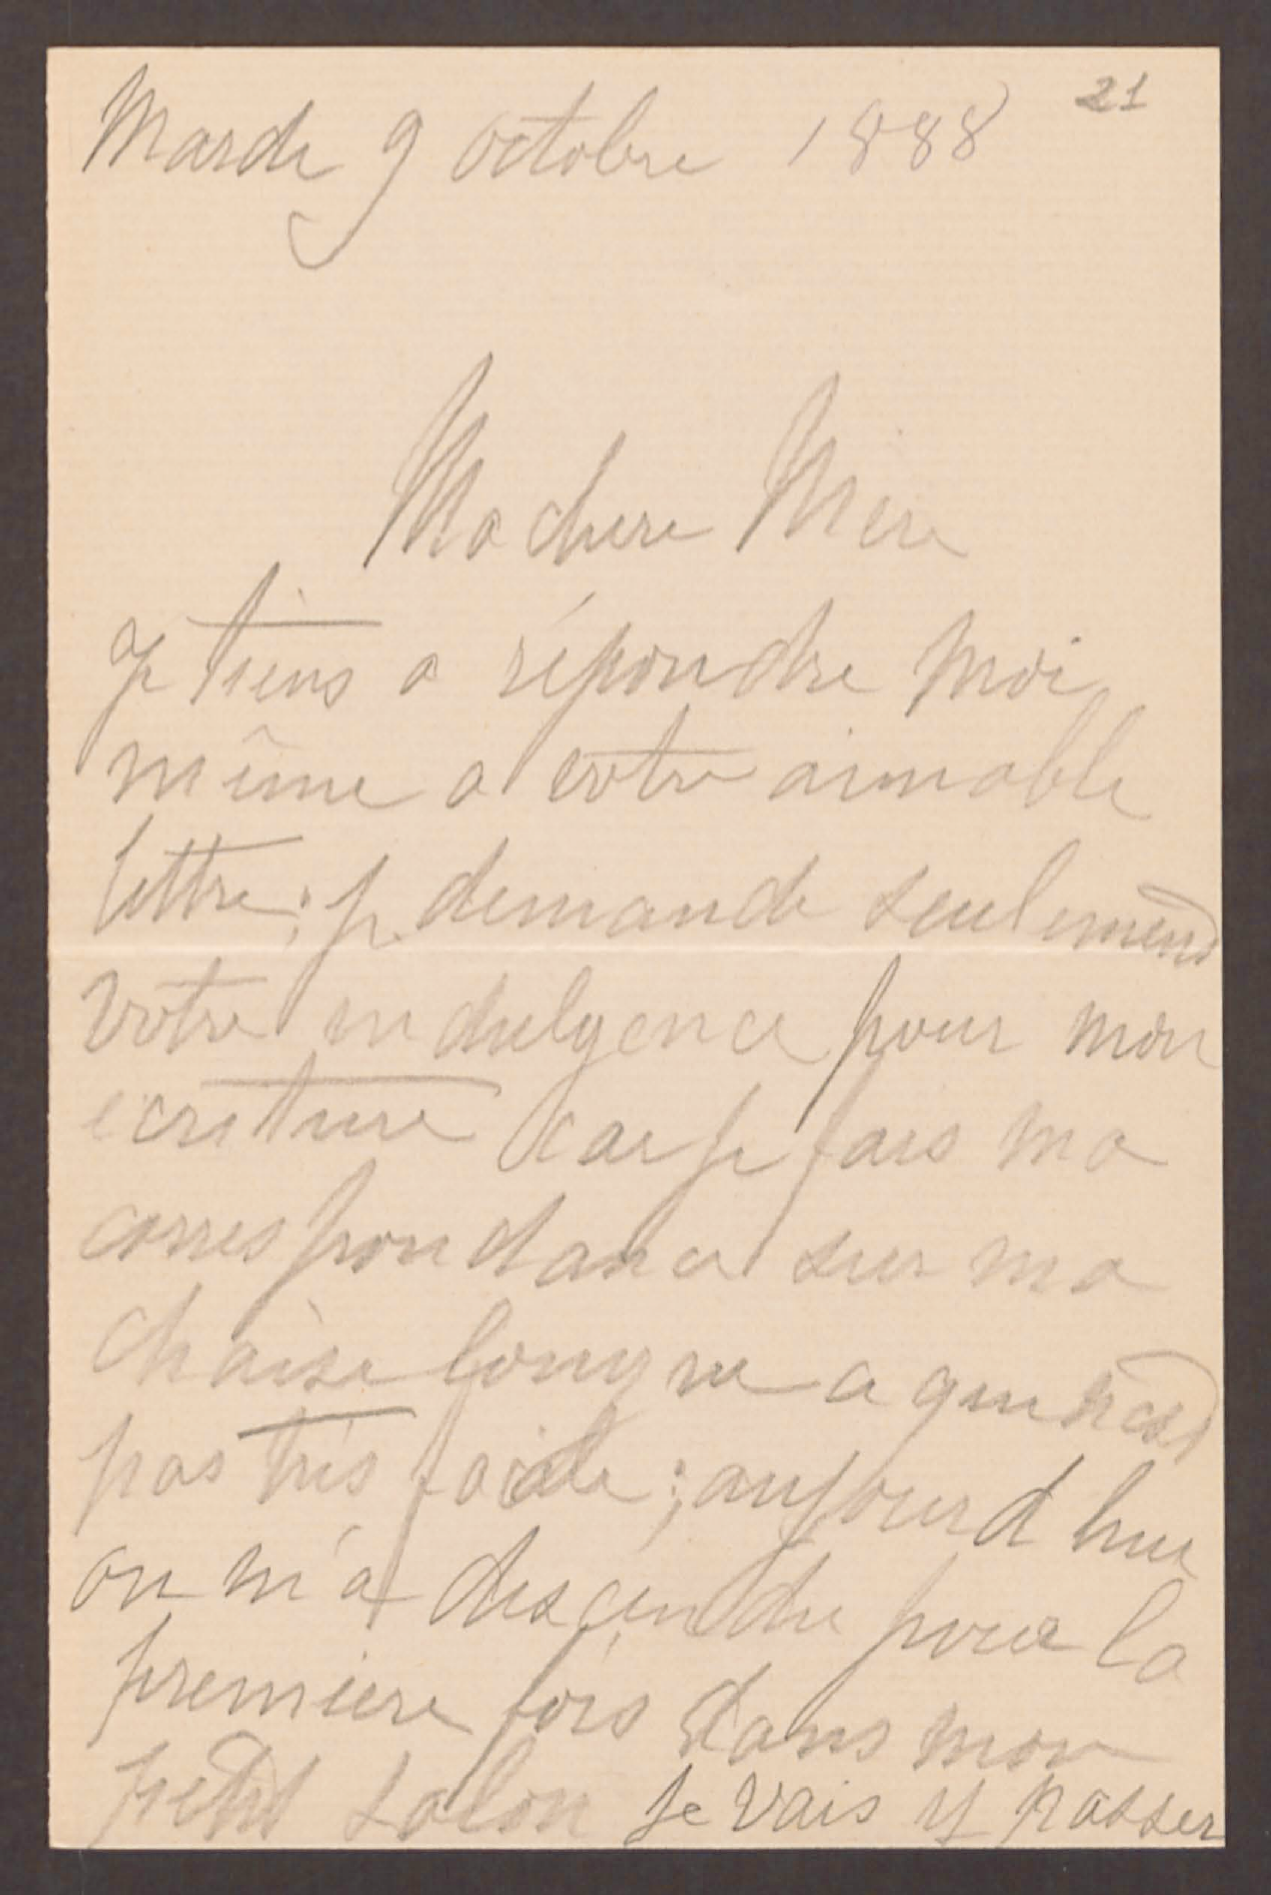 21
Mardi 9 octobre 1888
Ma chere Mere
je tiens a répondre moi
même a votre aimable
lettre ; je demande seulement
votre indulgence pour mon
ecriture car je fais ma
correspondance sur ma
chaise longue ce qui n'est
pas très facile ; aujourd hui
on m'a descendue pour la
premiere fois dans mon
petit salon je vais y passer